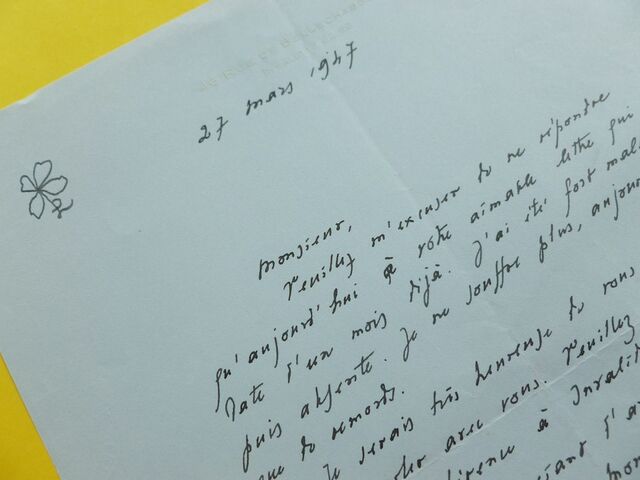 27 mars 1947
Monsieur,
Veuillez m'excuser de ne répondre
qu'aujourd'hui à votre aimable lettre qui
date d'un mois déjà. J'ai été fort mal
puis absente. Je ne souffre plus, aujour
que de remords.
Je serais très heureuse de vous
avec vous. Veuillez
à Invalid